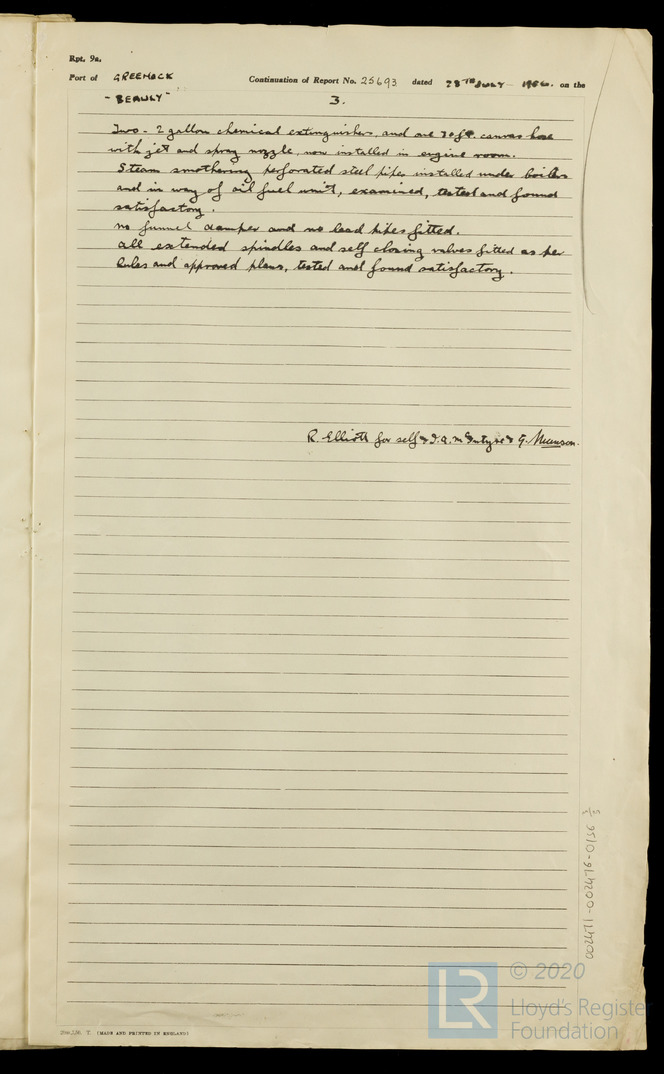 Rpt. 9a.
Port of GREENOCK Continuation of Report No. 25693 dated 28TH JULY on the
"BEAULY" 3.
Two - 2 gallon chemical extinguishers, and one 30ft. canvas hose
with jet and spray nozzle, now installed in engine room.
Steam smothering perforated steel pipes installed under boilers
and in way of oil fuel unit, examined, tested and found
satisfactory.
No funnel damper and no lead pipes fitted.
All extended spindles and self closing valves fitted as per
Rules and approved plans, tested and found satisfactory.
R. Elliott for self & McIntyre & G.
002471-002476-0156 3/3
T. (MADE AND PRINTED IN ENGLAND)
LR © 2020
Lloyd's Register
Foundation